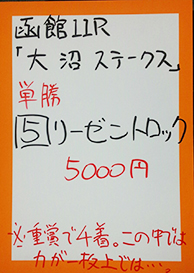 函館11R
「大沼ステークス」
単勝
5リーゼントロック
5000円
※重賞で4着。この中では
力が一枚上では…。